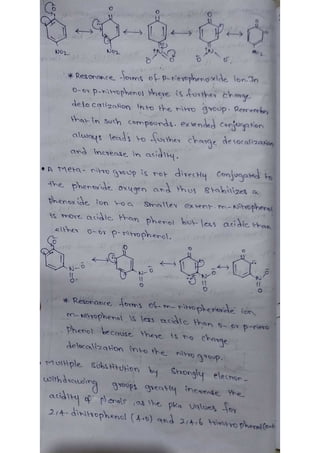 NO2 NO2 NO2
* Resonance forms of P-nitrophenoxide ion. In
o-or p-nitrophenol there is further charge
delocalization into the nitro group. Remember
that in such compounds. extended conjugation
always leads to further charge delocalization
and increase in acidity.
• A Meta- nitro group is not directly conjugated to
the phenoxide oxygen and thus stabilizes a
phenoxide ion to a smaller extent m-Nitrophenol
is more acidic than phenol but less acidic than
either o- or p-nitrophenol.
* Resonance forms of -m-nitrophenoxide ion
m-nitrophenol is less acidic than o- or p-nitro
phenol because there is no charge
delocalization into the nitro group.
Multiple substitution by strongly elecron-
withdrawing groups greatly increase the
acidity of , as the pka values for
2,4-dinitrophenol (4.0) and 2,4,6